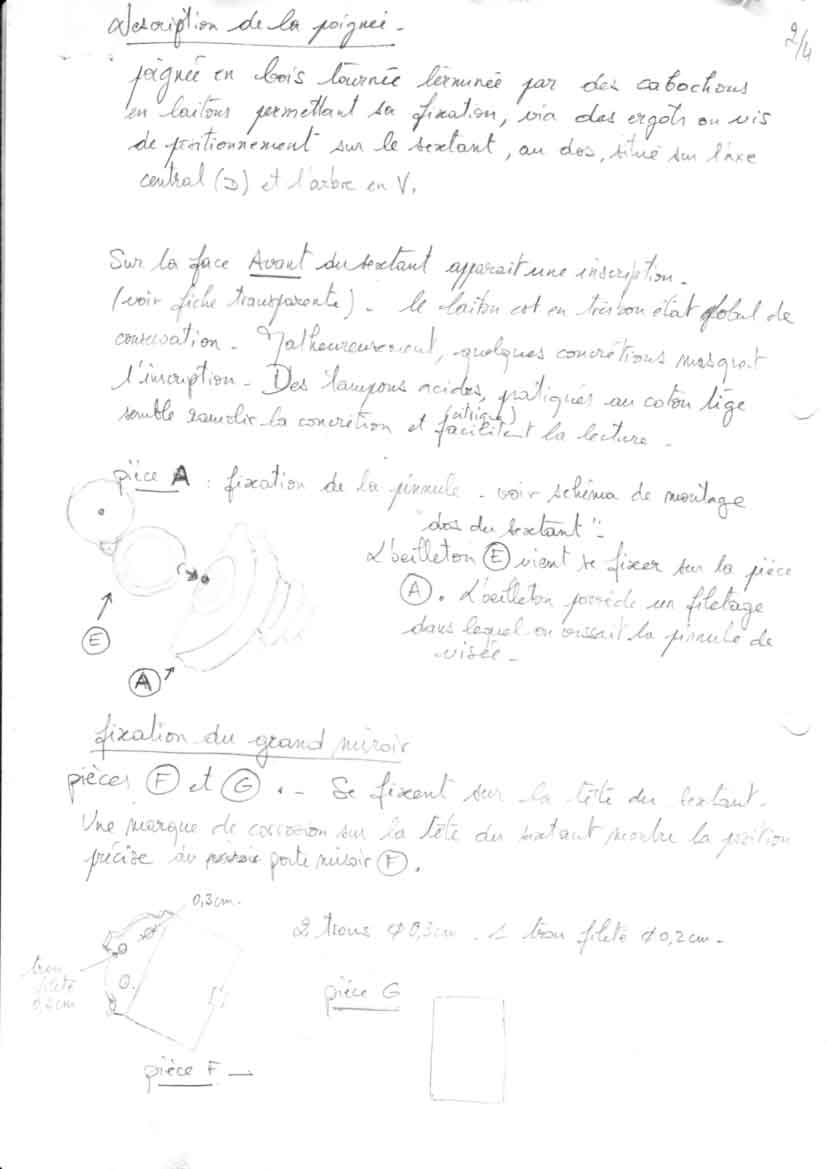 Description de la poignée.
2/4
poignée en bois tournée terminée par des cabochons
en laitons permettant sa fixation, via des ergots ou vis
de positionnement sur le sextant, au dos, situé sur l'axe
central (D) et l'arbre en V.
Sur la face Avant du sextant apparait une inscription.
(voir fiche transparente). le laiton est en très bon état global de
conservation. Malheureusement, quelques concrétions masquent
l'inscription. Des tampons acides, pratiqués au coton tige
(nitrique)
semble ramolir la concrétion et facilitent la lecture.
pièce A : fixation de la pinnule. voir schéma de montage
dos du sextant".
L'oeilleton (E) vient se fixer sur la pièce
(A). L'oeilleton possède un filetage
dans lequel on vissait la pinnule de
visée.
E
A
fixation du grand miroir
pièces (F) et (G). - Se fixent sur la tête du sextant.
Une marque de corrosion sur la tête du sextant montre la position
précise du porte miroir (F).
0,3cm.
2 trous ø 0,3cm. 1 trou fileté ø 0,2cm.
trou
fileté
0,2cm
pièce G
pièce F